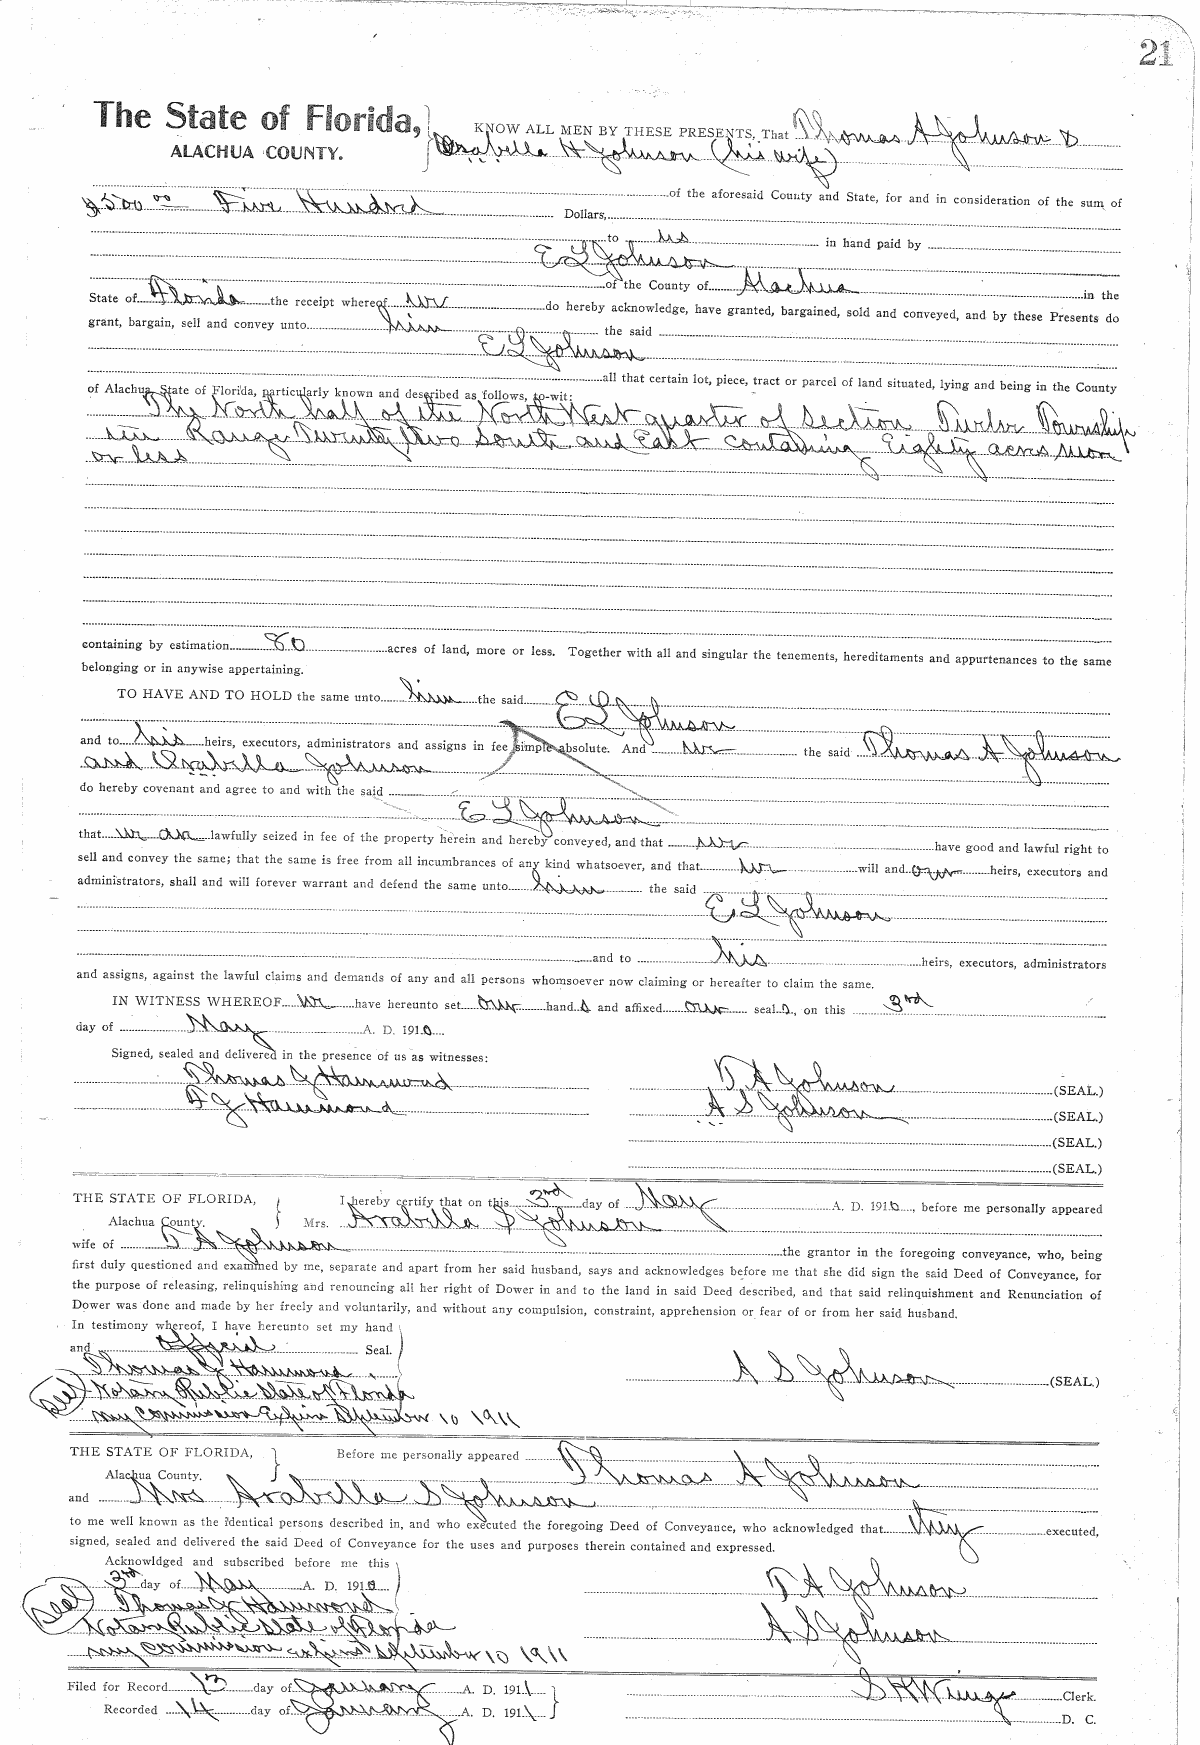 21
The State of Florida,
ALACHUA COUNTY.
KNOW ALL MEN BY THESE PRESENTS, That Thomas A Johnson &
Arabella H Johnson (his wife)
of the aforesaid County and State, for and in consideration of the sum of
$500 00 Five Hundred Dollars,
to us in hand paid by
E L Johnson
of the County of Alachua in the
State of Florida the receipt whereof we do hereby acknowledge, have granted, bargained, sold and conveyed, and by these Presents do
grant, bargain, sell and convey unto him the said
E L Johnson
all that certain lot, piece, tract or parcel of land situated, lying and being in the County
of Alachua, State of Florida, particularly known and described as follows, to-wit:
The North half of the North West quarter of Section Twelve Township
ten Range Twenty two South and East containing Eighty acres more
or less
containing by estimation 80 acres of land, more or less. Together with all and singular the tenements, hereditaments and appurtenances to the same
belonging or in anywise appertaining.
TO HAVE AND TO HOLD the same unto him the said
E L Johnson
and to his heirs, executors, administrators and assigns in fee simple absolute. And we the said Thomas A Johnson
and Arabella Johnson
do hereby covenant and agree to and with the said
E L Johnson
that we are lawfully seized in fee of the property herein and hereby conveyed, and that we have good and lawful right to
sell and convey the same; that the same is free from all incumbrances of any kind whatsoever, and that we will and our heirs, executors and
administrators, shall and will forever warrant and defend the same unto him the said
E. L Johnson
and to his heirs, executors, administrators
and assigns, against the lawful claims and demands of any and all persons whomsoever now claiming or hereafter to claim the same.
IN WITNESS WHEREOF we have hereunto set our hand s and affixed our seal s, on this 3rd
day of May A. D. 1910
Signed, sealed and delivered in the presence of us as witnesses:
Thomas G Hammond
A J Hammond
T A Johnson (SEAL.)
A S Johnson (SEAL.)
(SEAL.)
(SEAL.)
THE STATE OF FLORIDA,
Alachua County.
I hereby certify that on this 3rd day of May A. D. 1910, before me personally appeared
Mrs. Arabella S Johnson
wife of T A Johnson the grantor in the foregoing conveyance, who, being
first duly questioned and examined by me, separate and apart from her said husband, says and acknowledges before me that she did sign the said Deed of Conveyance, for
the purpose of releasing, relinquishing and renouncing all her right of Dower in and to the land in said Deed described, and that said relinquishment and Renunciation of
Dower was done and made by her freely and voluntarily, and without any compulsion, constraint, apprehension or fear of or from her said husband.
In testimony whereof, I have hereunto set my hand
and official Seal.
Thomas G Hammond.
A S Johnson (SEAL.)
Seal Notary Public State of Florida
my commission Expires September 10 1911
THE STATE OF FLORIDA,
Alachua County.
Before me personally appeared Thomas A Johnson
and Mrs Arabella S Johnson
to me well known as the identical persons described in, and who executed the foregoing Deed of Conveyance, who acknowledged that they executed,
signed, sealed and delivered the said Deed of Conveyance for the uses and purposes therein contained and expressed.
Acknowldged and subscribed before me this
3rd day of May A. D. 1910
T A Johnson
Seal Thomas G Hammond
Notary Public State of Florida
A S Johnson
my commission expires September 10 1911
Filed for Record 13 day of January A. D. 1911
S H Wienges Clerk.
Recorded 14 day of January A. D. 1911
D. C.